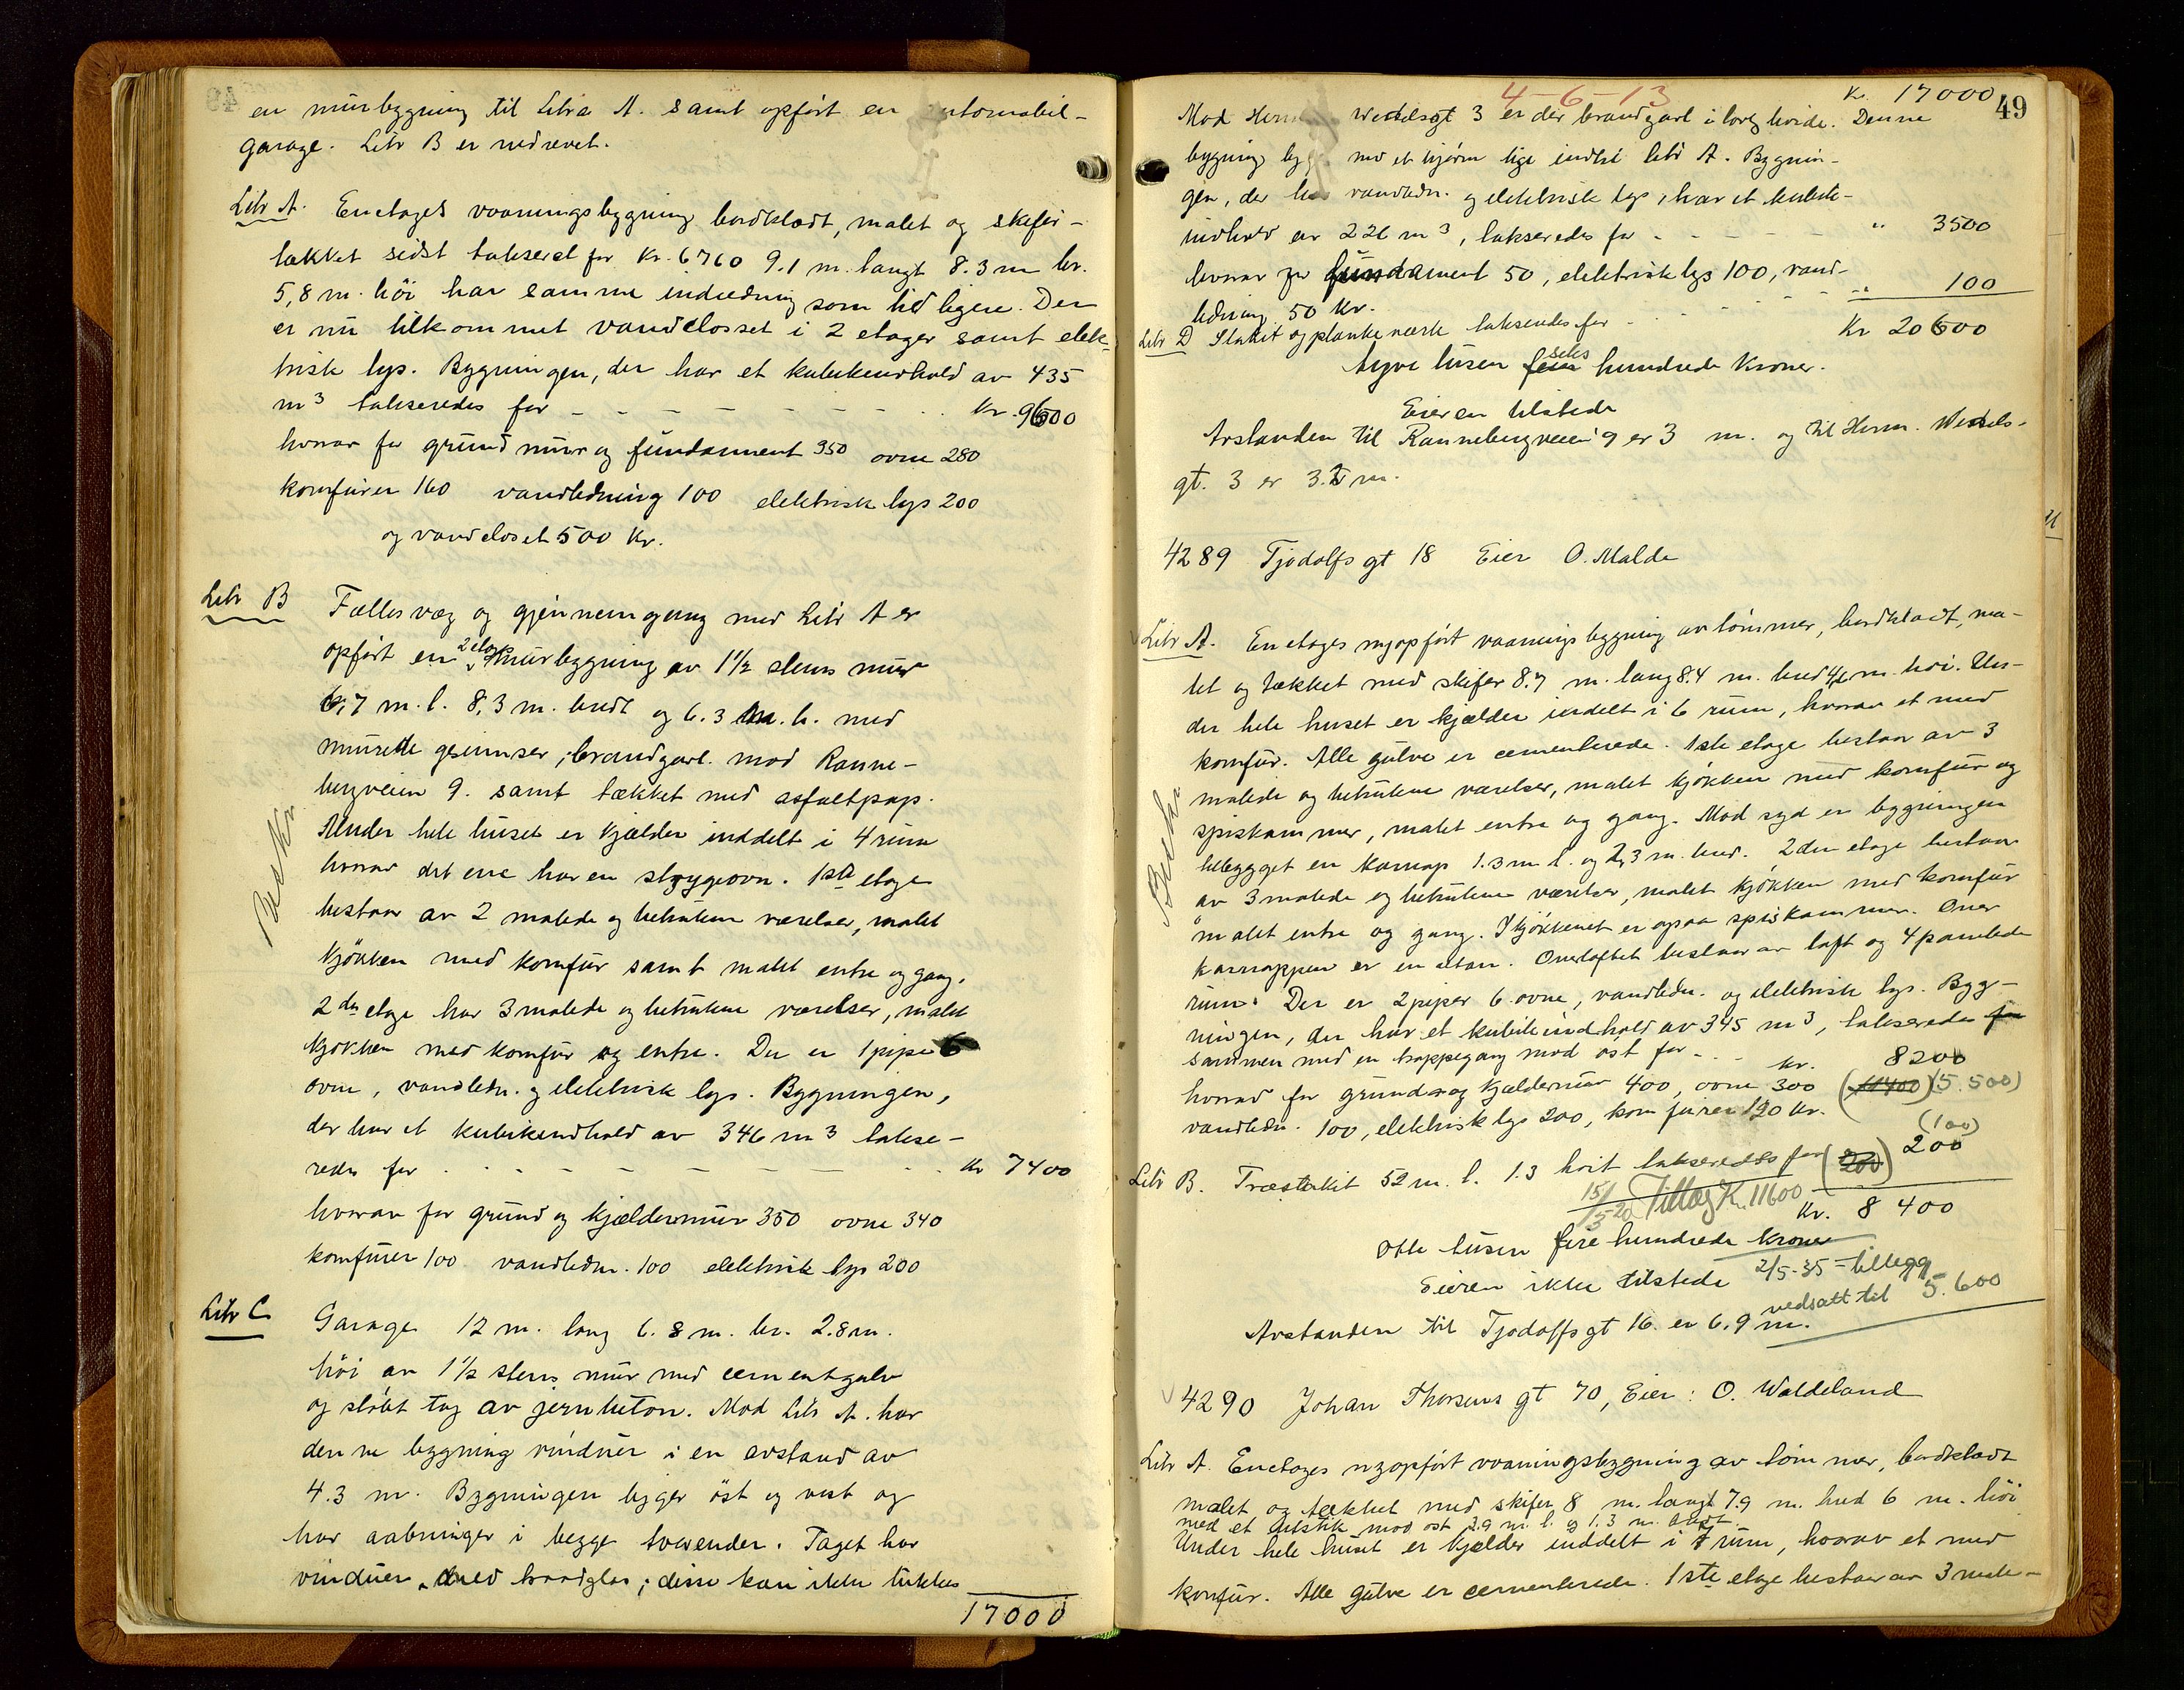 en murbygning til Litra A. samt opført en automobil-
garage. Litr B er nedrevet.
Litr A. Enetages vaaningsbygning bordklædt, malet og skifer-
tækket sidst takseret for Kr. 6760 9.1 m. langt 8.3 m br.
5,8 m. höi har samme indredning som tidligere. Der
er nu tilkommet vandclosset i 2 etager samt elek-
trisk lys. Bygningen, der har et kubikindhold av 435
m3 takseredes for - - - - - - - Kr. 9600
hvorav for grundmur og fundament 350 ovne 280
komfurer 160 vandledning 100 elektrisk lys 200
og vandcloset 500 Kr.
Litr B Fælles væg og gjennemgang med Litr A er
opført en 2 etag murbygning av 1 1/2 stens mur
6,7 m. l. 8,3 m. bredt og 6.3 m. h. med
murede gesimser, brandgavl. mod Ranne-
bergveien 9. samt tækket med asfaltpap.
Under hele huset er kjælder inddelt i 4 rum
hvorav det ene har en strygeovn. 1ste etage
bestaar av 2 malede og betrukne værelser, malet
kjökken med komfur samt malet entre og gang.
2den etage har 3 malede og betrukne værelser, malet
kjökken med komfur og entre. Der er 1 pipe 6
ovne, vandledn. og elektrisk lys. Bygningen,
der har et kubikindhold av 346 m3 takse-
redes for - - - - - - Kr 7400
hvorav for grund og kjældermur 350 ovne 340
komfurer 100 vandledn. 100 elektrisk lys 200
Litr C Garage 12 m. lang 6.8 m. br. 2.8 m.
höi av 1 1/2 stens mur med cementgulv
og støbt tag av jernbeton. Mod Litr A. har
denne bygning vinduer i en avstand av
4.3 m. Bygningen ligger öst og vest og
har aabninger i begge tverender. Taget har
vinduer med traadglas; disse kan ikke lukkes
17000
4-6-13
Kr. 17000
49
Mod Herm Wedelsgt 3 er der brandgavl i lovlig høide. Denne
bygning ligger med et hjørne lige indtil Litr A. Bygnin-
gen, der har vandledn. og elektrisk lys, har et kubik-
indhold av 226 m3, takseredes for - - - - " 3500
hvorav for fundament 50, elektrisk lys 100, vand-
ledning 50 Kr.
Litr D Stakit og plankeværk takseredes for - - - " 100
Kr 20600
tyve tusen seks hundrede Kroner.
Eieren tilstede
Avstanden til Rannebergveien 9 er 3 m. og til Herm. Wedels-
gt. 3 er 3.2 m.
4289 Tjodolfs gt 18 Eier O. Malde
Litr A. En etages nyopført vaaningsbygning av tömmer, bordklædt, ma-
let og tækket med skifer 8.7 m. lang 8.4 m. bred 4,6 m. höi. Un-
der hele huset er kjælder indelt i 6 rum, hvorav et med
komfur. Alle gulve er cementerede. 1ste etage bestaar av 3
malede og betrukne værelser, malet kjökken med komfur og
spiskammer, malet entre og gang. Mod syd er bygningen
tilbygget en karnap 1.3 m l. og 2,3 m. bred. 2den etage bestaar
av 3 malede og betrukne værelser, malet kjökken med komfur
malet entre og gang. I kjökkenet er ogsaa spiskammer. Over
karnappen er en altan. Overloftet bestaar av loft og 4 panelede
rum. Der er 2 piper 6 ovne, vandledn. og elektrisk lys. Byg-
ningen, der har et kubikindhold av 345 m3, takseredes for
sammen med en trappegang mod öst for - - - Kr. 8200
hvorav for grund og kjældermur 400, ovne 300 (11400) (5.500)
vandledn. 100, elektrisk lys 200, komfurer 120 Kr.
(100)
Litr B. Træstakit 52 m. l. 1.3 höit takseredes for (200) 200
15/5-20 Tillæg Kr. 11600
Kr. 8 400
Otte tusen fire hundrede Kroner
Eieren ikke tilstede 2/5-35 - tillegg
nedsatt til 5.600
Avstanden til Tjodolfsgt 16. er 6.9 m.
4290 Johan Thorsens gt 70, Eier: O. Waldeland
Litr A. Enetages nyopført vaaningsbygning av tömmer, bordklædt
malet og tækket med skifer 8 m. langt 7.9 m. bred 6 m. höi
med et utstik mod öst 3.9 m. l. og 1.3 m. bredt.
Under hele huset er kjælder inddelt i 7 rum, hvorav et med
komfur. Alle gulve er cementerede. 1ste etage bestaar av 3 male-